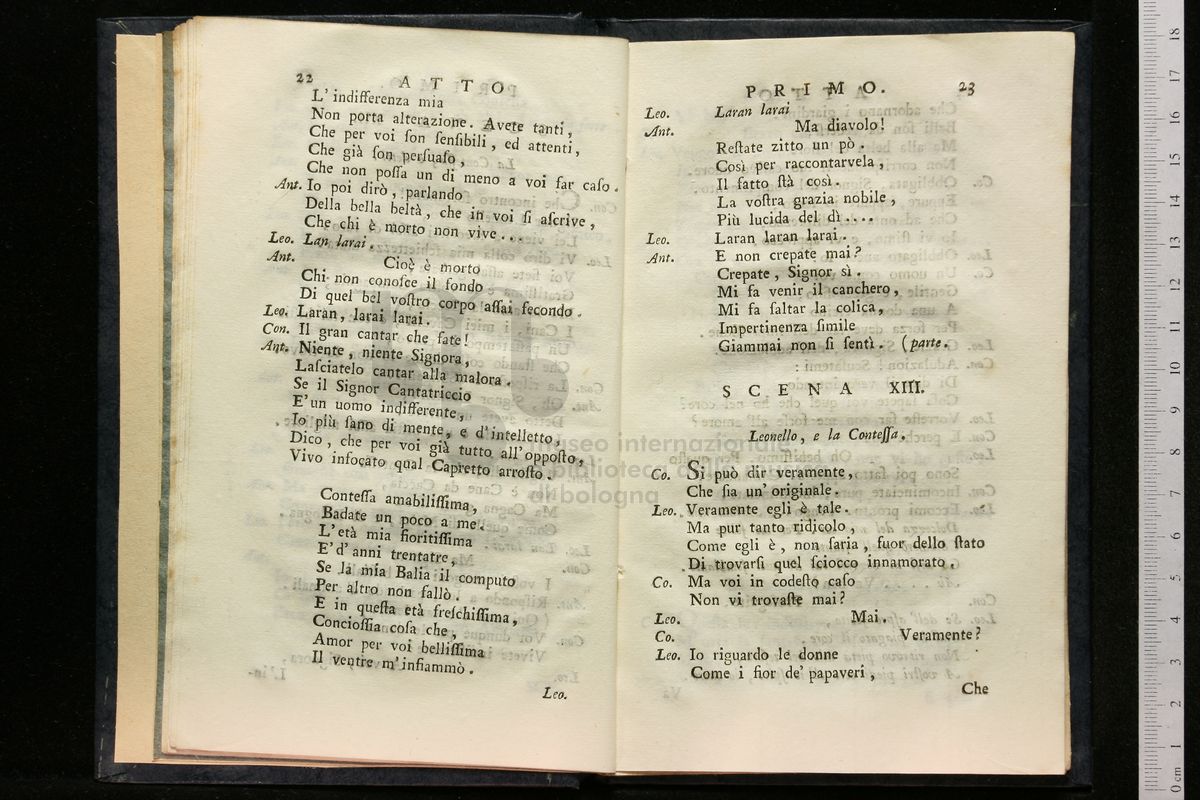 22 ATTO
L' indifferenza mia
Non porta alterazione. Avete tanti,
Che per voi ſon ſenſibili, ed attenti,
Che già ſon perſuaſo,
Che non poſſa un di meno a voi far caſo.
Ant. Io poi dirò, parlando
Della bella beltà, che in voi ſi aſcrive,
Che chi è morto non vive...
Leo. Lan larai.
Ant. Cioè è morto
Chi non conoſce il fondo
Di quel bel voſtro corpo aſſai fecondo.
Leo. Laran, larai larai.
Con. Il gran cantar che fate!
Ant. Niente, niente Signora,
Laſciatelo cantar alla malora.
Se il Signor Cantatriccio
E' un uomo indifferente,
Io più ſano di mente, e d'intelletto,
Dico, che per voi già tutto all'oppoſto,
Vivo infocato qual Capretto arroſto.
Conteſſa amabiliſſima,
Badate un poco a me.
L'età mia fioritiſſima
E' d' anni trentatre,
Se la mia Balia il computo
Per altro non fallò.
E in queſta età freſchiſſima,
Concioſſia coſa che,
Amor per voi belliſſima
Il ventre m'infiammò.
Leo.
PRIMO. 23
Leo. Laran larai
Ant. Ma diavolo!
Reſtate zitto un pò.
Così per raccontarvela,
Il fatto ſtà così.
La voſtra grazia nobile,
Più lucida del dì....
Leo. Laran laran larai.
Ant. E non crepate mai?
Crepate, Signor sì.
Mi fa venir il canchero,
Mi fa ſaltar la colica,
Impertinenza ſimile
Giammai non ſi ſentì. (parte.
SCENA XIII.
Leonello, e la Conteſſa.
Co. Si può dir veramente,
Che ſia un' originale.
Leo. Veramente egli è tale.
Ma pur tanto ridicolo,
Come egli è, non ſaria, fuor dello ſtato
Di trovarſi quel ſciocco innamorato.
Co. Ma voi in codeſto caſo
Non vi trovaſte mai?
Leo. Mai.
Co. Veramente?
Leo. Io riguardo le donne
Come i fior de' papaveri,
Che
museo internazionale
biblioteca della musica
di bologna
0 cm 1 2 3 4 5 6 7 8 9 10 11 12 13 14 15 16 17 18